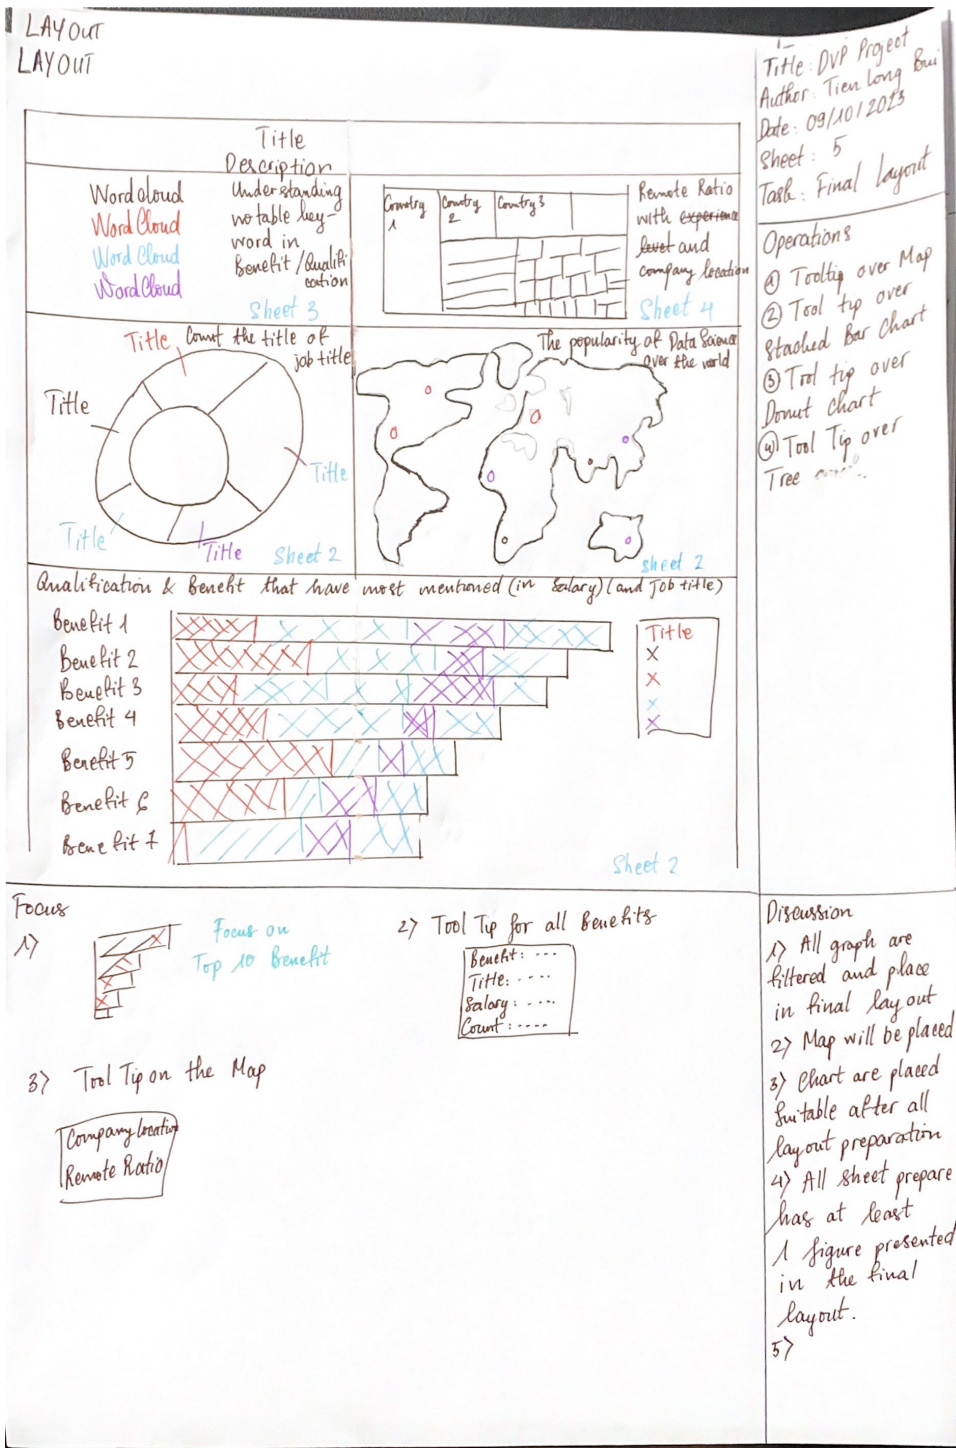 LAYOUT
LAYOUT
Title: DVP Project
Author: Tien Long Bui
Date: 09/10/2023
Sheet: 5
Task: Final layout
Title
Description
Wordcloud
Word Cloud
Word Cloud
WordCloud
Understanding
notable key-
word in
Benefit/Qualifi
cation
Sheet 3
Country
1
Country
2
Country 3
Remote Ratio
with experience
level and
company location
Sheet 4
Count the title of
job title
Title
Title
Title
Title
Title
Sheet 2
The popularity of Data Science
over the world
Sheet 2
Qualification & Benefit that have most mentioned (in Salary) (and job title)
Benefit 1
Benefit 2
Benefit 3
Benefit 4
Benefit 5
Benefit 6
Benefit 7
Title
X
X
X
X
Sheet 2
Operations
① Tooltip over Map
② Tool tip over
Stacked Bar Chart
③ Tool tip over
Donut Chart
④ Tool Tip over
Tree
Focus
1)
Focus on
Top 10 Benefit
2) Tool Tip for all Benefits
Benefit: ...
Title: ....
Salary: ....
Count: ....
3) Tool Tip on the Map
Company location
Remote Ratio
Discussion
1) All graph are
filtered and place
in final layout
2) Map will be placed
3) Chart are placed
suitable after all
layout preparation
4) All sheet prepare
has at least
1 figure presented
in the final
layout.
5)